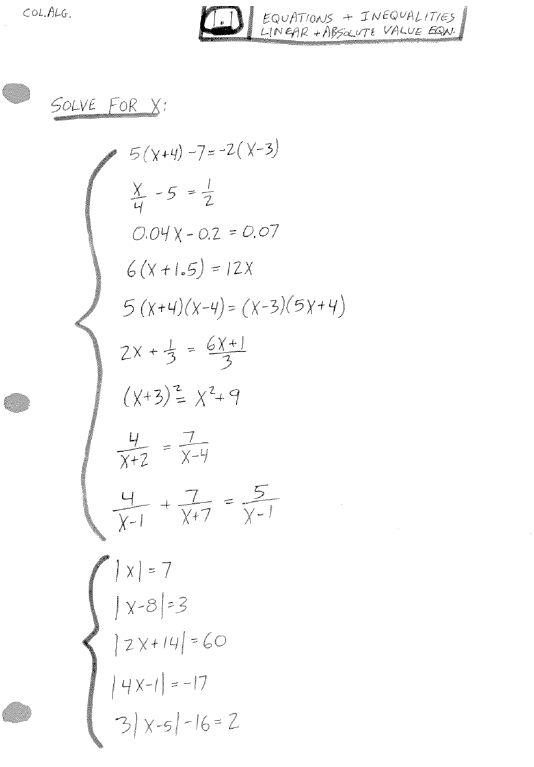 COL.ALG.
1.1
EQUATIONS + INEQUALITIES
LINEAR + ABSOLUTE VALUE EQN.
SOLVE FOR X:
5(X+4)-7=-2(X-3)
X/4 - 5 = 1/2
0.04X-0.2=0.07
6(X+1.5)=12X
5(X+4)(X-4)=(X-3)(5X+4)
2X + 1/3 = 6X+1/3
(X+3)²=X²+9
4/X+2 = 7/X-4
4/X-1 + 7/X+7 = 5/X-1
|X|=7
|X-8|=3
|2X+14|=60
|4X-1|=-17
3|X-5|-16=2